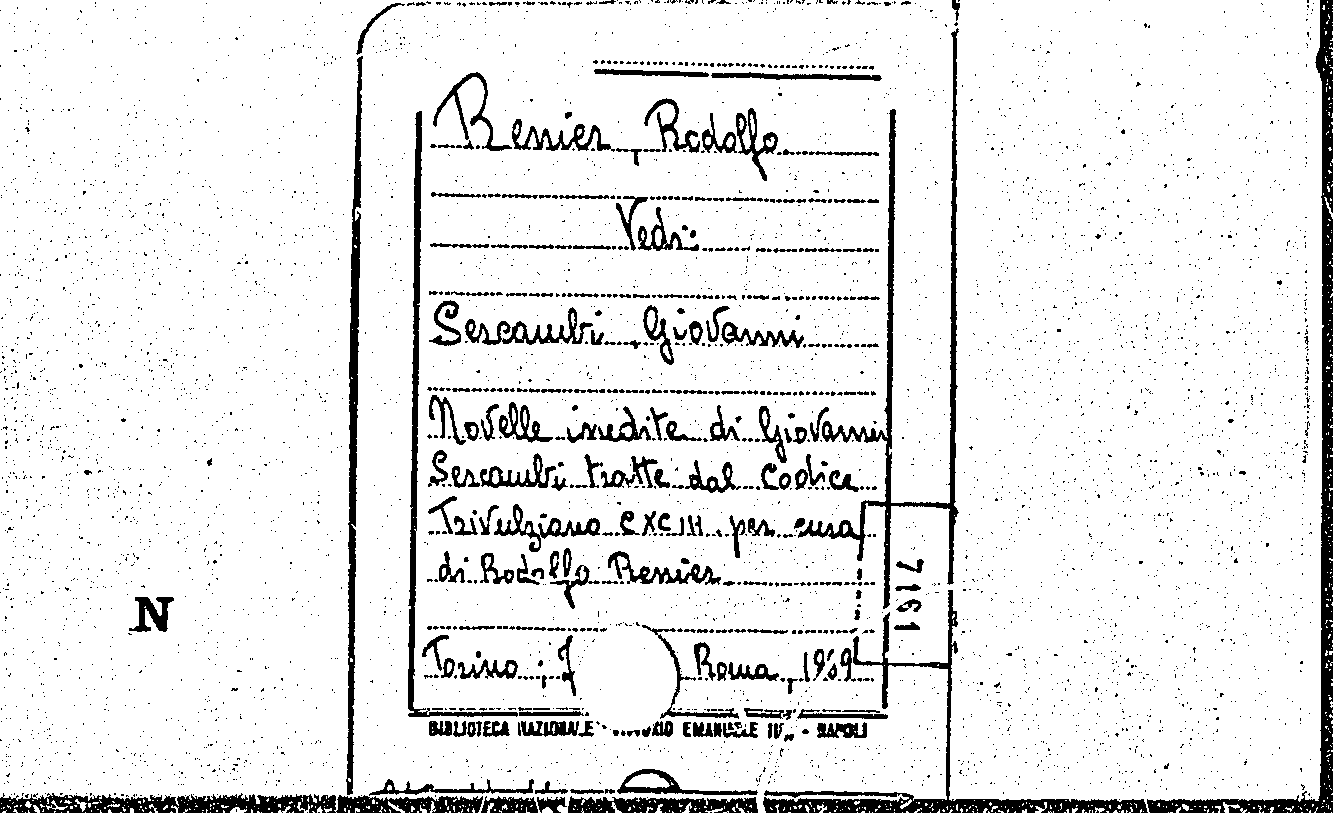 Renier, Rodolfo.
Vedi:
Sercambi, Giovanni
Novelle inedite di Giovanni
Sercambi tratte dal Codice
Trivulziano CXCIII per cura
di Rodolfo Renier
7161
N
Torino; Roma,
BIBLIOTECA NAZIONALE EMANUELE III - NAPOLI